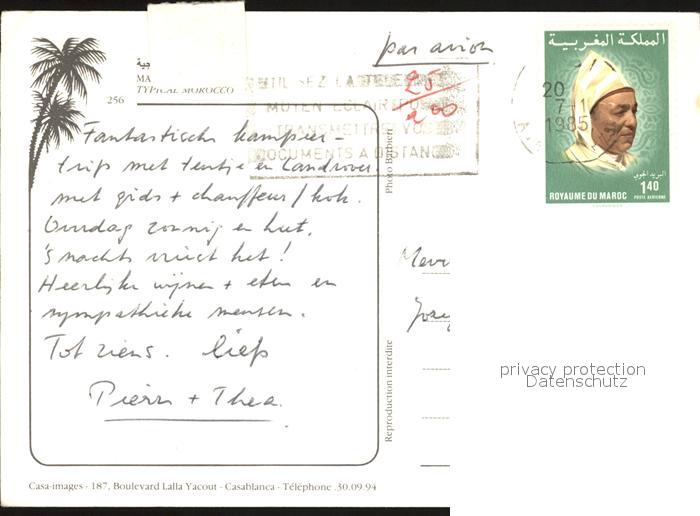 par avion
المملكة المغربية
جية
MA
TYPICAL MOROCCO
256
25
200
20
7-1
1985
UTILISEZ LA TELE
MOYEN ECLAIR POUR
TRANSMETTRE VOS
DOCUMENTS A DISTANCE
البريد الجوي
ROYAUME DU MAROC
POSTE AERIENNE
1,40
Fantastische kampeer-
trip met tentje en Landrover
met gids + chauffeur/kok.
zonnig en
's nachts vriest het!
Heerlijke wijnen + eten en
sympathieke mensen.
Tot ziens. liefs
Pierre + Thea.
Photo Barbieri
Reproduction interdite
Mevr
privacy protection
Datenschutz
Casa-images - 187, Boulevard Lalla Yacout - Casablanca - Téléphone .30.09.94